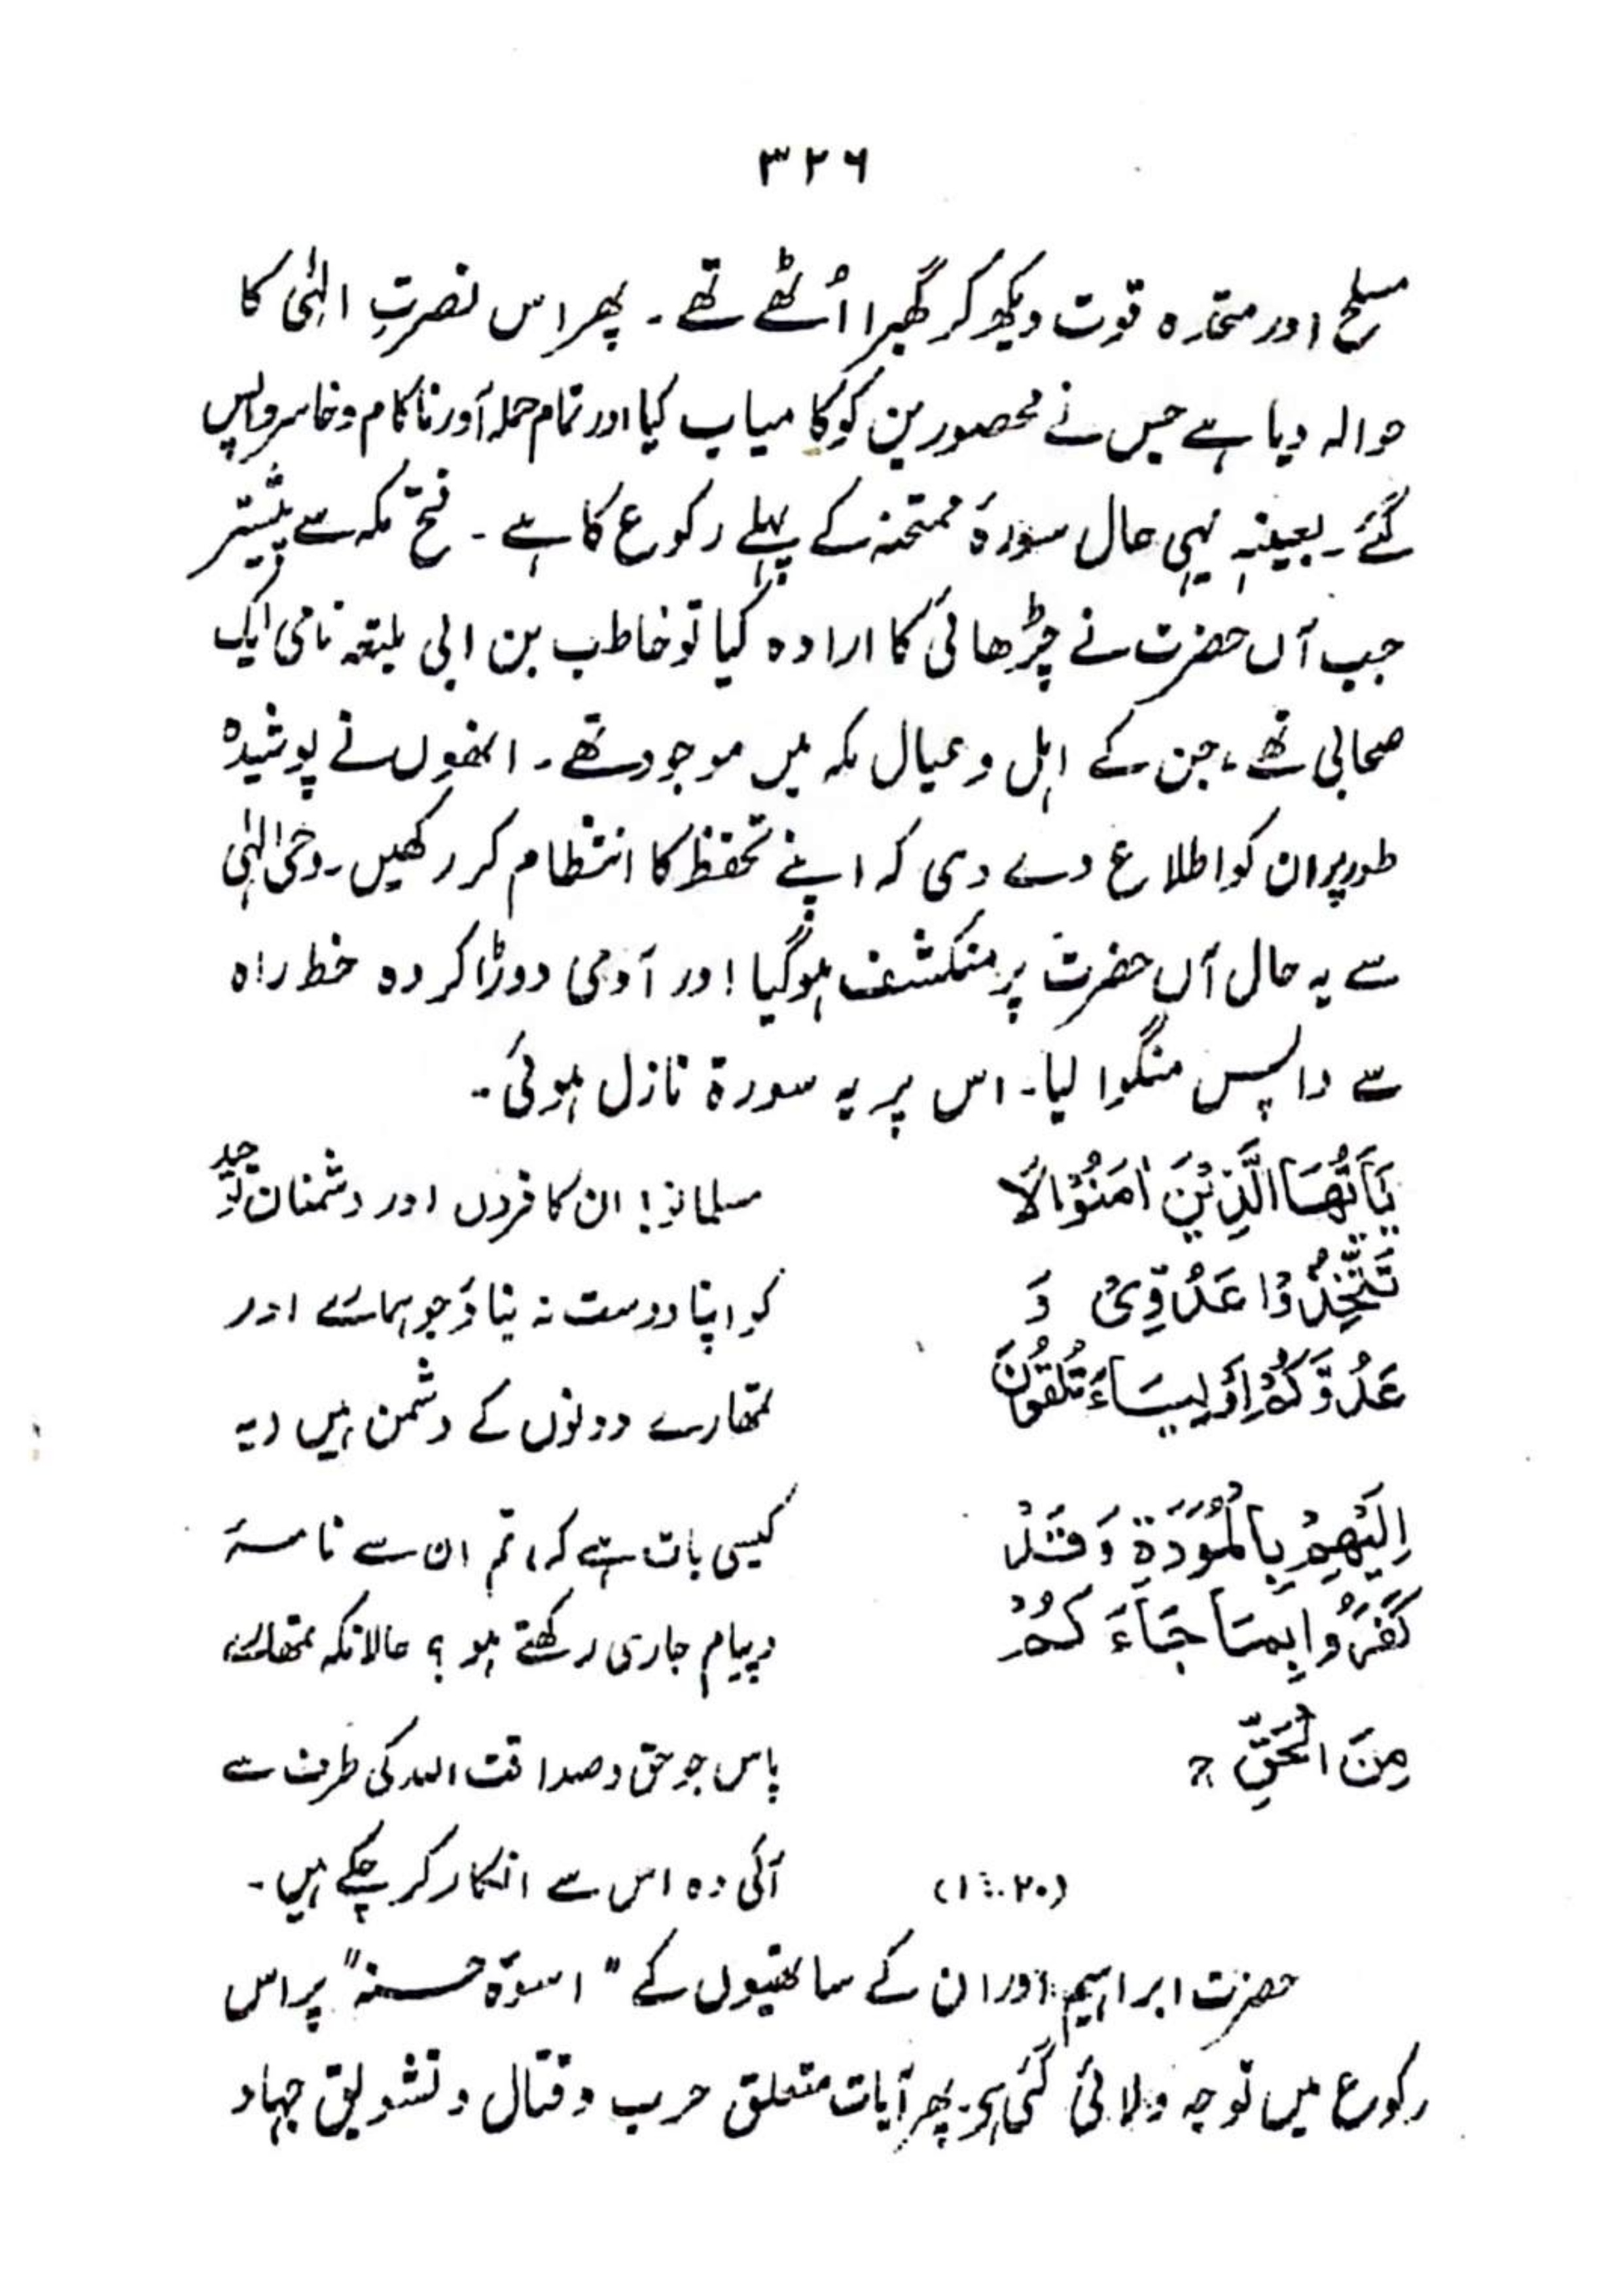 ۳۲۶
مسلح اور متحدہ قوت دیکھ کر گھبرا اُٹھے تھے۔ پھر اس نصرتِ الٰہی کا
حوالہ دیا ہے جس نے محصورین کو کامیاب کیا اور تمام حملہ آور ناکام و خاسر واپس
گئے۔ بعینہٖ یہی حال سورۂ ممتحنہ کے پہلے رکوع کا ہے۔ فتح مکہ سے پیشتر
جب آں حضرت نے چڑھائی کا ارادہ کیا تو خاطب بن ابی بلتعہ نامی ایک
صحابی تھے، جن کے اہل و عیال مکہ میں موجود تھے۔ انھوں نے پوشیدہ
طور پر ان کو اطلاع دے دی کہ اپنے تحفظ کا انتظام کر رکھیں۔ وحی الٰہی
سے یہ حال آں حضرت پر منکشف ہوگیا اور آدمی دوڑا کر وہ خط راہ
سے واپس منگوا لیا۔ اس پر یہ سورۃ نازل ہوئی۔
يٰٓاَيُّهَا الَّذِيْنَ اٰمَنُوْا لَا
تَتَّخِذُوْا عَدُوِّىْ وَ
عَدُوَّكُمْ اَوْلِيَآءَ تُلْقُوْنَ
اِلَيْهِمْ بِالْمَوَدَّةِ وَقَدْ
كَفَرُوْا بِمَا جَآءَكُمْ
مِنَ الْحَقِّ ج
(۱:۶۰)
مسلمانو! ان کافروں اور دشمنان توحید
کو اپنا دوست نہ بناؤ جو ہمارے اور
تمھارے دونوں کے دشمن ہیں (یہ
کیسی بات ہے کہ) تم ان سے نامہ
و پیام جاری رکھتے ہو؟ حالانکہ تمھارے
پاس جو حق و صداقت اللہ کی طرف سے
آئی وہ اس سے انکار کر چکے ہیں۔
حضرت ابراہیم اور ان کے ساتھیوں کے "اسوۂ حسنہ" پر اس
رکوع میں توجہ دلائی گئی ہی۔ پھر آیات متعلق حرب و قتال و تشویق جہاد